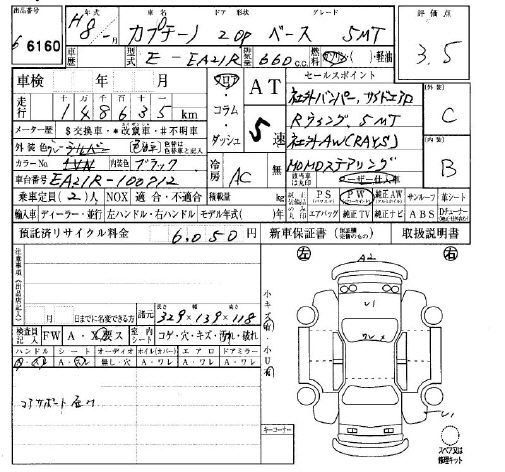 出品番号
年式 車名 ドア 形状 グレード 評価点
6160
H8 カプチーノ 2DP ベース 5MT
3.5
車歴 型式 E-EA21R 排気量 660 c.c. 燃料 ( )・軽油
車検 年 月
フロア・コラム・ダッシュ
AT
5速
セールスポイント
社外バンパー、サイドエアロ
Rウィング、5MT
社外AW(RAYS)
MOMOステアリング
外装 C
内装 B
走行 十 万 千 百 十 一
148635 km
メーター歴 $交換車・*改ざん車・#不明車
外装色
カラーNo. 内装色 ブラック
車台番号 EA21R-100712
冷房 AC
無
該当車は丸印
ユーザー仕入車
乗車定員(2)人 NOX 適合・不適合 積載量 kg
PS PW 純正AW サンルーフ 革シート
輸入車 ディーラー・並行 左ハンドル・右ハンドル モデル年式( )年
エアバッグ 純正TV 純正ナビ ABS
預託済リサイクル料金 6,050円
新車保証書 取扱説明書
注意事項(出品店記入)
左 右
A2
U1
小キズ有 小U有
月 日までに名変できる方
諸元 長さ 幅 高さ
329×139×118
検査員記入 FW A・X ス 室内シート コゲ・穴・キズ・汚れ・破れ
ハンドル シート オーディオ ホイル(カバー) エアロ ドアミラー
A・ス A・ワレ 無し・穴 A・ワレ A・ワレ A・ワレ
コアサポート
キーコーナー
U1
スペア又は修理キット